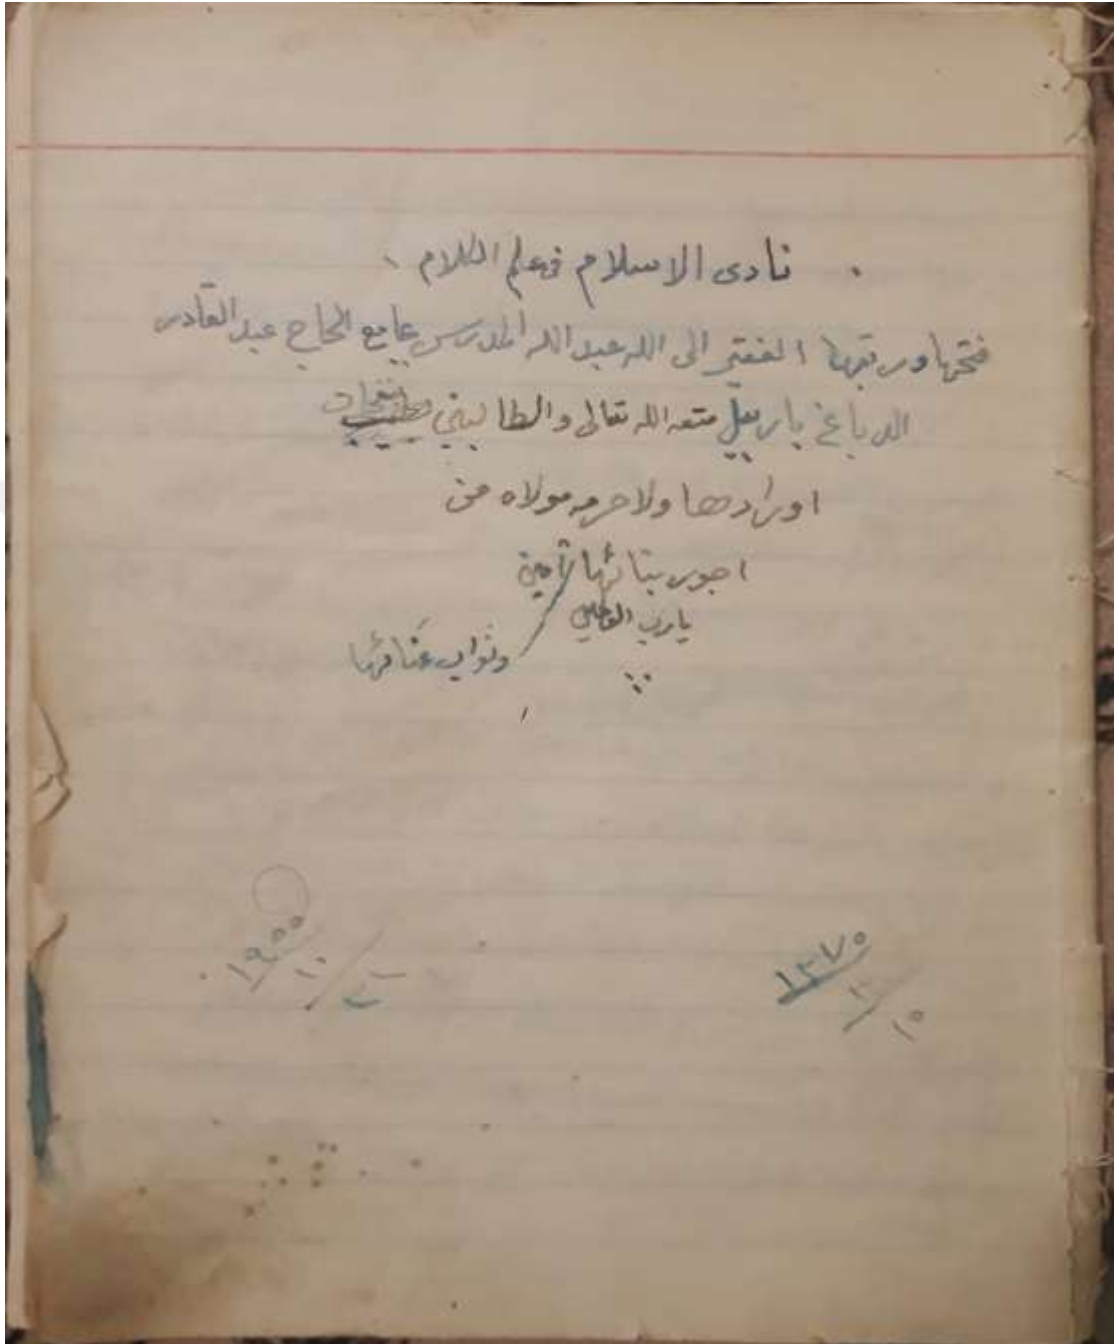 نادى الاسلام فى علم الكلام
فتحها ورتبها الفقير الى الله عبد الله المدرس بجامع الحاج عبد القادر
الدباغ باربيل متعه الله تعالى والطالبين
اورادها ولا حرمه مولاه من
اجور بنائها آمين
يا رب العالمين
وثواب عنائها
١٣٧٥
٣
١٥
١٩٥٥
١٠